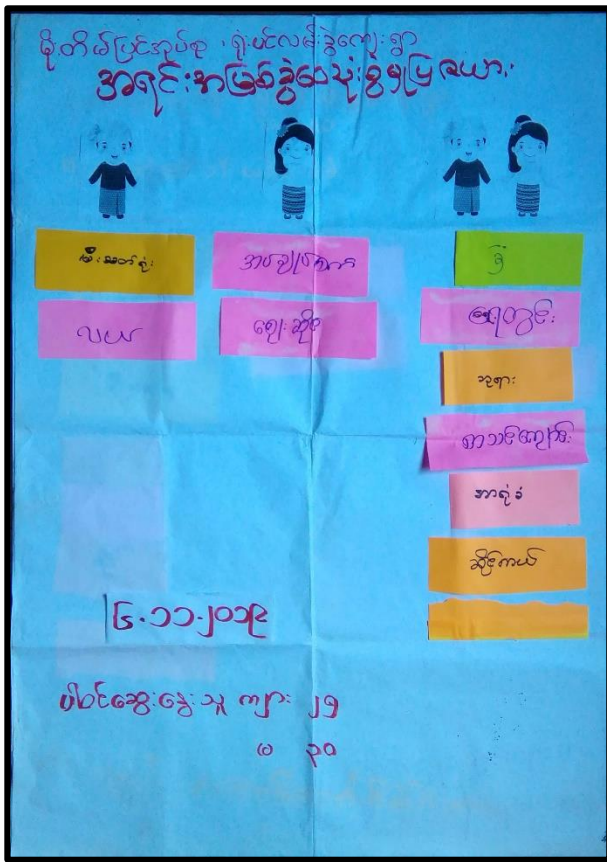 မိုတိမ်ပြင်အုပ်စု ၊ ရုံးပင်လမ်းခွဲကျေးရွာ
အရင်းအမြစ်ခွဲဝေသုံးစွဲမှုပြဇယား
မီးသတ်ရုံး
လယ်
အပ်ချုပ်စက်
ဈေးဆိုင်
ခြံ
ရေတွင်း
ဘုရား
စာသင်ကျောင်း
အာရုံခံ
ဆိုင်ကယ်
၆.၁၁.၂၀၁၉
ပါဝင်ဆွေးနွေးသူ ကျား ၂၅
မ ၃၀